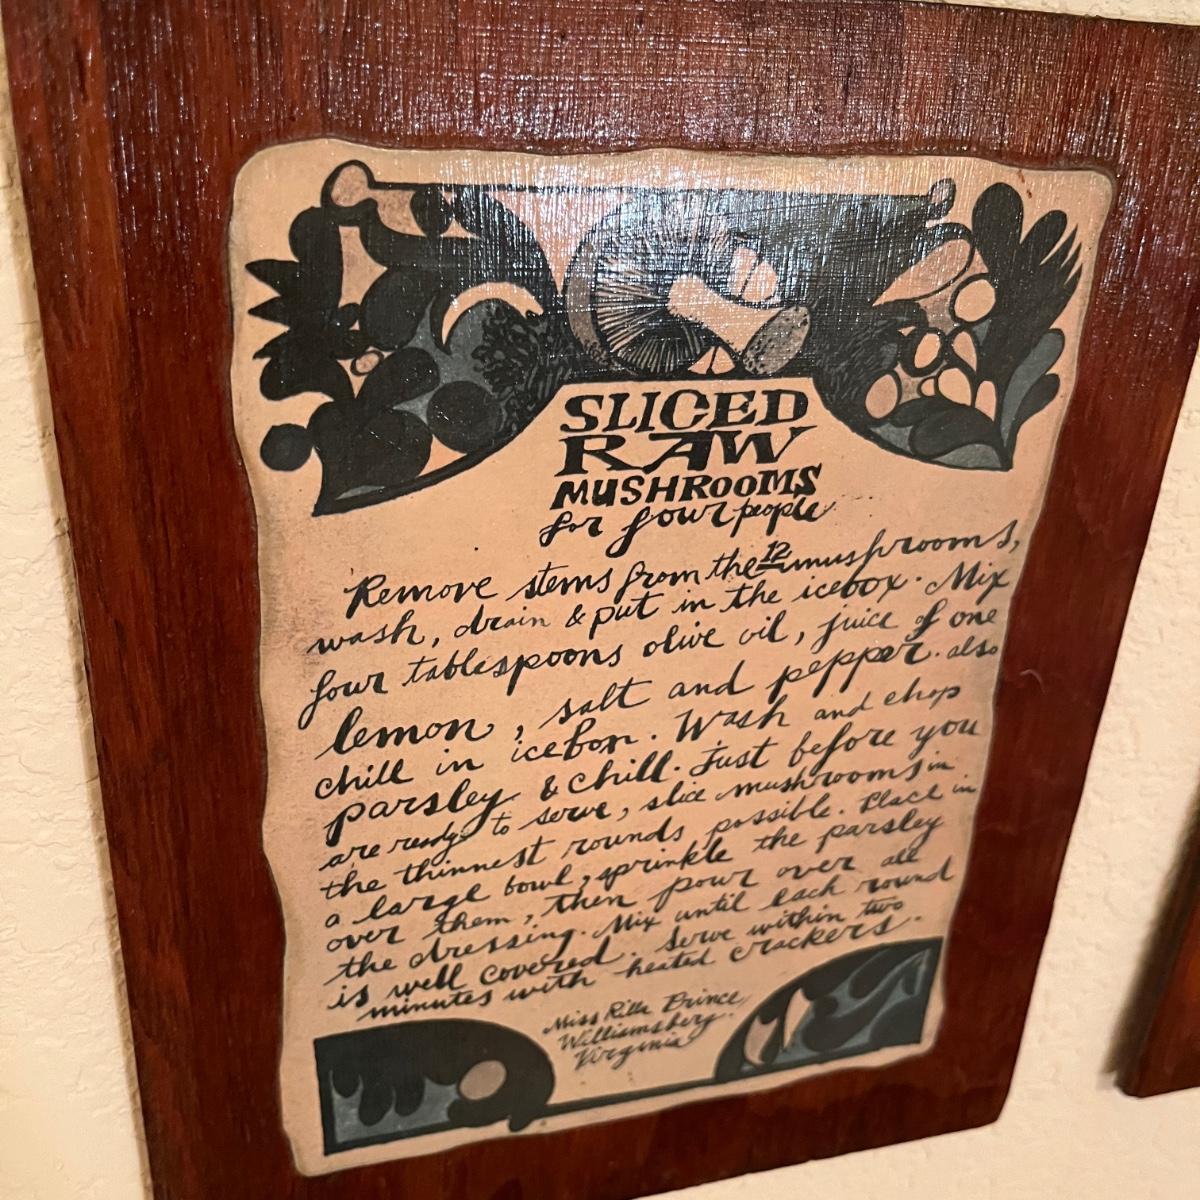 SLICED
RAW
MUSHROOMS
for four people
Remove stems from the 12 mushrooms,
wash, drain & put in the icebox. Mix
four tablespoons olive oil, juice of one
lemon, salt and pepper. also
chill in icebox. Wash and chop
parsley & chill. Just before you
are ready to serve, slice mushrooms in
the thinnest rounds possible. Place in
a large bowl, sprinkle the parsley
over them, then pour over all
the dressing. Mix until each round
is well covered. Serve within two
minutes with heated crackers.
Miss Rilla Prince,
Williamsburg.
Virginia